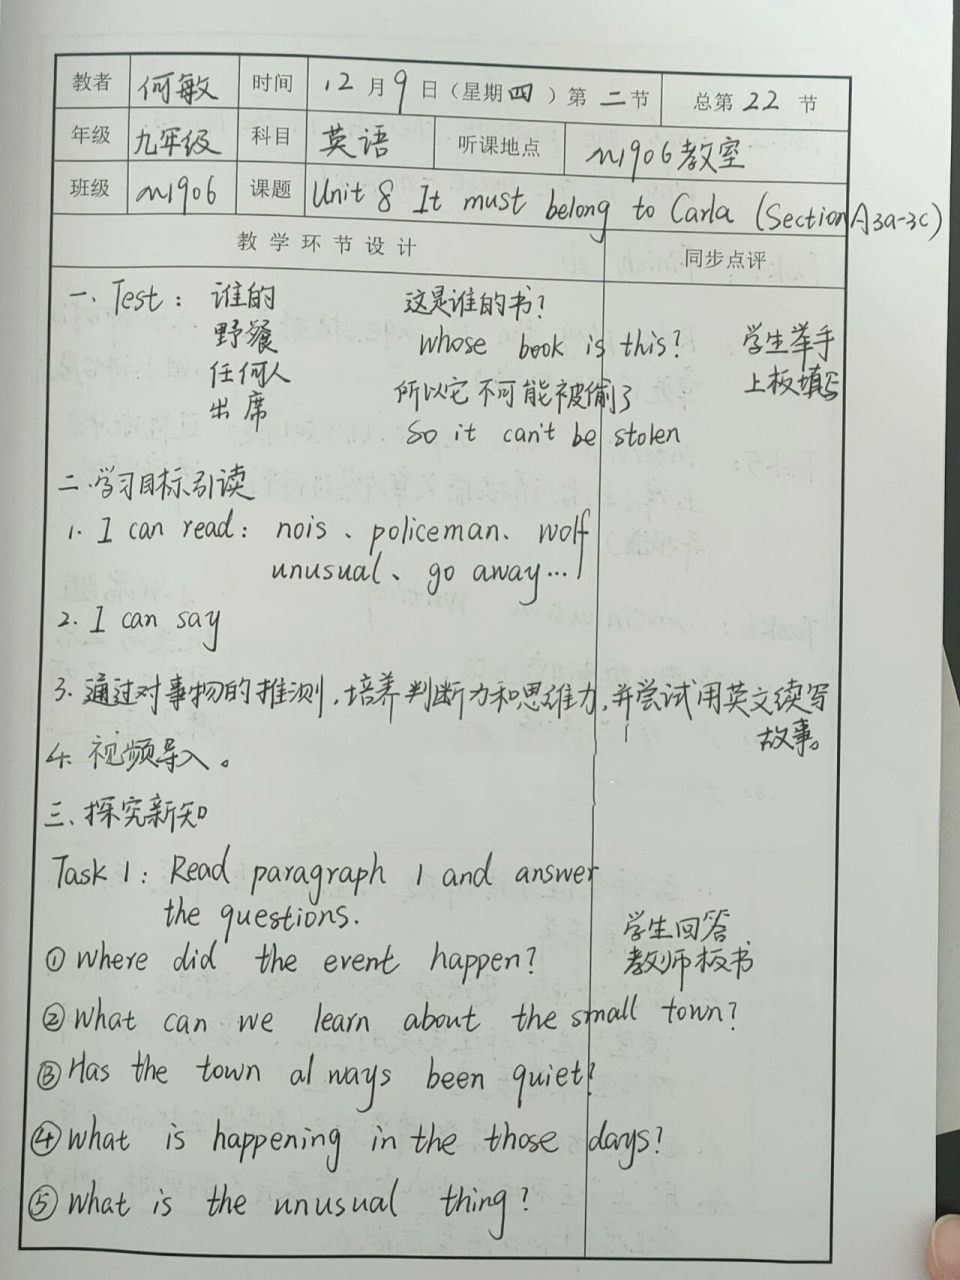 教者 何敏 时间 12月9日（星期四）第二节 总第22节
年级 九年级 科目 英语 听课地点 m1906教室
班级 m1906 课题 Unit 8 It must belong to Carla (Section A 3a-3c)
教学环节设计 同步点评
一. Test: 谁的 这是谁的书?
野餐 whose book is this? 学生举手
任何人 所以它不可能被偷了 上板填写
出席 So it can't be stolen
二.学习目标引读
1. I can read: nois、policeman、wolf
unusual、go away...
2. I can say
3. 通过对事物的推测,培养判断力和思维力,并尝试用英文续写
故事。
4. 视频导入。
三、探究新知
Task 1: Read paragraph 1 and answer
the questions.
学生回答
①Where did the event happen? 教师板书
②What can we learn about the small town?
③Has the town always been quiet?
④What is happening in the those days?
⑤What is the unusual thing?